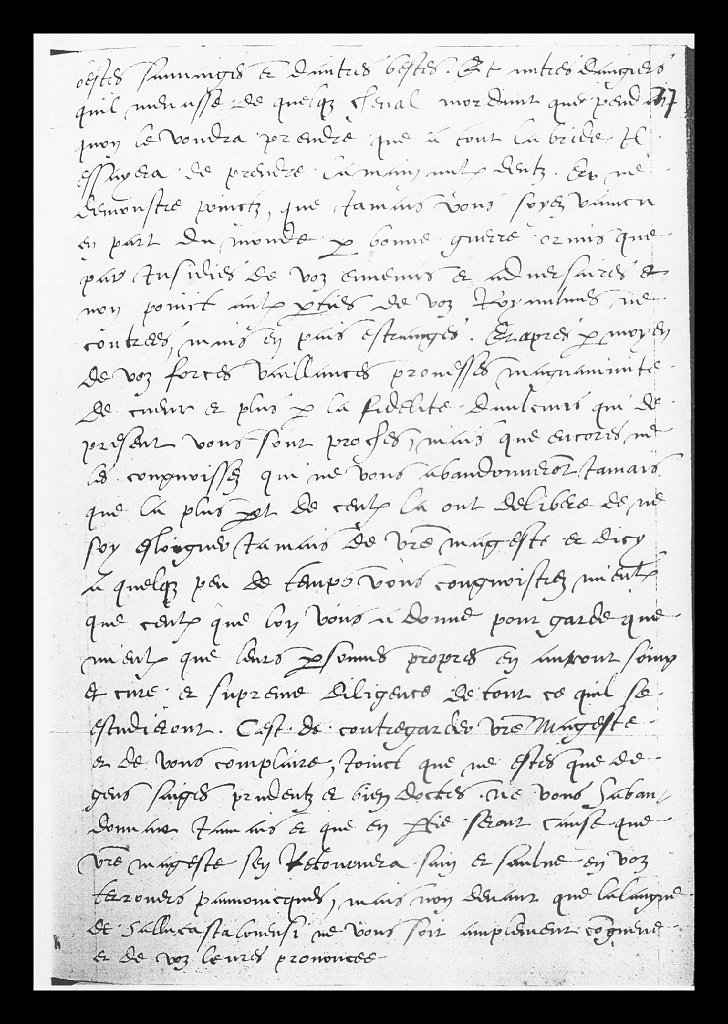 bestes sauvaiges et d'autres bestes. Et aultres dangiers
quil menasse de quelq cheval mordant que pend 37
quon le vouldra prendre que a tout la bride Il
essayera de prendre la main aulx dentz. Et ne
demonstre poinct, que Jamais vous soyez vaincu
en part du monde p bonne guerre ormis que
par Insidies de voz ennemis et adversaires et
non poinct aulx pties de voz Royaulmes, ne
contrees, mais en pais estranges. Et apres p moyen
de voz forces vaillances prouesses magnanimite
de cueur et plus p la fidelite daulcuns qui de
present vous sont proches, mais que encores ne
les congnoissez qui ne vous abandonneront Jamais
que la plus pt de ceulx la ont delibere de ne
soy esloigner Jamais de vre mageste et dicy
a quelq peu de temps vous congnoistrez mieulx
que ceulx que lon vous a donne pour garde que
mieulx que leurs psonnes propres en auront soing
et cure et supreme diligence de tout ce quil se
estudiront. C'est de contregarder vre Mageste
et de vous complaire, Joinct que ne estes que de
gens saiges prudentz et bien doctes ne vous haban-
donnant Jamais et que en ptie seront cause que
vre mageste sen Retournera sain et saulve en voz
terrouers pannonicques, mais non devant que la langue
de Sallucastalonensi ne vous soit amplement congneue
et de voz leures prononcee